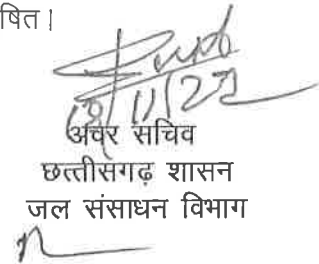 षित।
अवर सचिव
छत्तीसगढ़ शासन
जल संसाधन विभाग